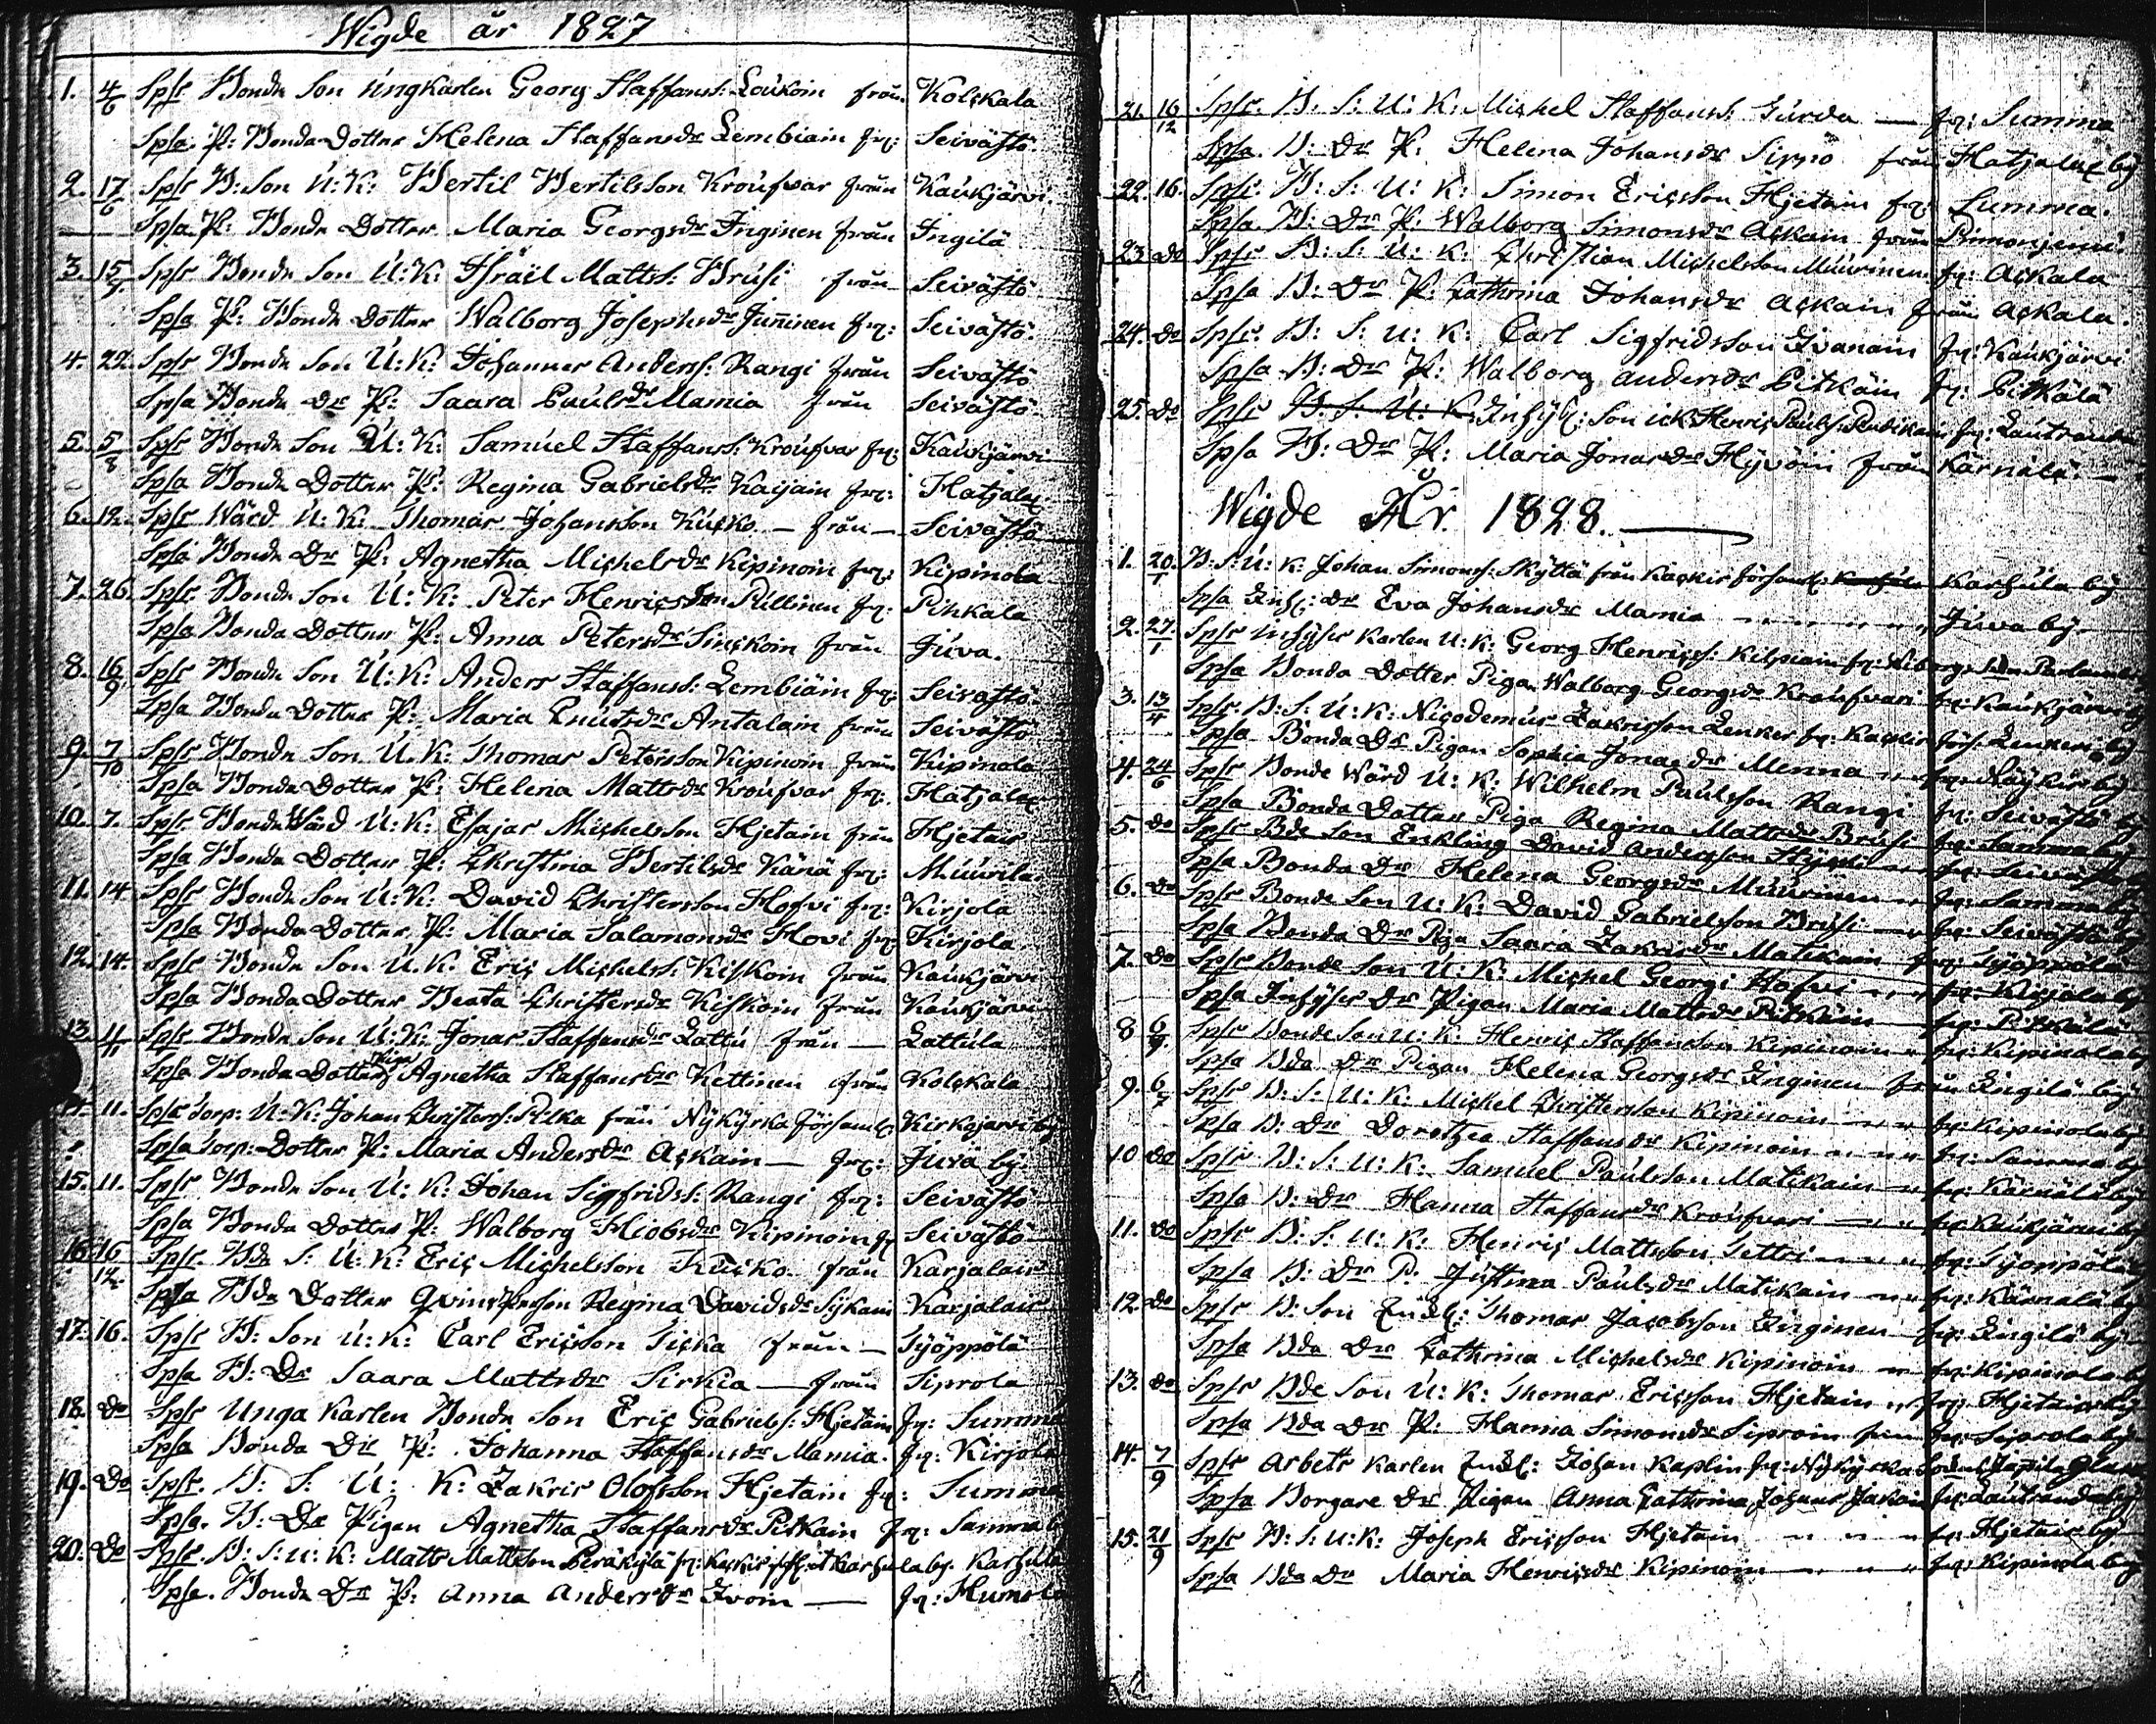 Wigde år 1827
1. 4/6 Spse Bonde Son Ungkarlen Georg Staffans: Loukoin från Kolckala
Spsa. P: Bonda Dotter Helena Staffansdr Lembiain frn: Seivästö
2. 17/6 Spse B: Son U: K: Bertil Bertilsson Kroufvar från Kaukjärvi
Spsa P: Bonde Dotter Maria Georgsdr Inginen från Ingilä
3. 15/7 Spse Bonde Son U: K: Israël Matts: Brusi från Seivästö
Spsa P: Bonde Dotter Walborg Josephsdr Junninen frn: Seivästö
4. 22. Spse Bonde Son U: K: Johannes Anderss: Rangi från Seivästö
Spsa Bonde Dr P: Saara Paulsdr Mamia från Seivästö
5. 5/8 Spse Bonde Son U: K: Samuel Staffans: Kroufvar frn: Kaukjärvi
Spsa Bonde Dotter P: Regina Gabrielsdr Kaijain frn: Hatjalax
6. 12. Spse Wärd U: K: Thomas Johansson Kucko från Seivästö
Spsa Bonde Dr P: Agnetha Michelsdr Kipinoin frn: Kipinola
7. 26. Spse Bonde Son U: K: Peter Henricsson Pullinen frn: Pihkala
Spsa Bonda Dotter P: Anna Petersdr Sinckoin från Juva.
8. 16/9 Spse Bonde Son U: K: Anders Staffanss: Lembiäin frn: Seivästö
Spsa Bonde Dotter P: Maria Knutsdr Antalain från Seivästö
9. 7/10 Spse Bonde Son U: K: Thomas Petersson Kipinoin från Kipinola
Spsa Bonda Dotter P: Helena Mattsdr Kroufvar frn: Hatjalax
10. 7. Spse Bonde Wärd U: K: Esajas Michelsson Hjetain från Hjetais
Spsa Bonda Dotter P: Christina Bertilsdr Käriä frn: Muurila
11. 14 Spse Bonde Son U: K: David Christersson Hofvi frn: Kirjola
Spsa Bonda Dotter P: Maria Salamonsdr Hovi frn: Kirjola
12. 14. Spse Bonde Son U. K: Eric Michelss: Kiskoin från Kaukjärvi
Spsa Bonda Dotter Beata Christersdr Kiskoin från Kaukjärvi
13. 4/11 Spse Bonde Son U: K: Jonas Staffansdr Lattu från Lattula
Spsa Bonda Dotter Pigan Agnetha Staffansdr Kettinen från Kolckala
14. 11. Spse Torp: U: K: Johan Christerss: Pilka från Nykyrka Församl: Kirkjarvi by
Spsa Torp: Dotter P: Maria Andersdr Ackain frn: Juva by.
15. 11. Spse Bonde Son U: K: Johan Sigfridss: Rangi frn: Seivästö
Spsa Bonda Dotter P: Walborg Hiobsdr Kipinoin fr Seivästö
16. 16/12 Spse. Bde S: U: K: Eric Michelsson Kucko från Karjalais
Spsa Bda Dotter Qvins Person Regina Davidsdr Sykain Karjalais
17. 16. Spse B: Son U: K: Carl Ericsson Ticka från Työppölä
Spsa B: Dr Saara Mattsdr Sirkia från Siprola
18. Do Spse Unga Karlen Bonde Son Eric Gabrielss: Hjetain frn: Summa
Spsa Bonda Dr P: Johanna Staffansdr Mamia. frn: Kirjola
19. Do Spse. B: S: U: K: Zakris Olofsson Hjetain frn: Summa
Spsa. B: Dr Pigan Agnetha Staffansdr Pitkäin frn: Samma b
20. Do Spse. B: S: U: K: Matts Mattsson Peräkylä Karhula by. Karhula
Spsa. Bonde Dr P: Anna Andersdr Ivoin frn: Humola
21. 16/12 Spse. B: S: U: K: Michel Staffans: Turda frn: Summa
Spsa. B: Dr P: Helena Johansdr Simo från Hatjalax by
22. 16. Spse. B: S: U: K: Simon Ericsson Hjetain frn: Summa.
Spsa B: Dr P: Walborg Simonsdr Ackain från
23 Do Spse B: S: U: K: Christian Michelsson Muurinen frn: Ackala
Spsa B: Dr P: Cathrina Johansdr Ackain från Ackala.
24. Do Spse: B: S: U: K: Carl Sigfridsson Ivanain frn: Kaukjärvi
Spsa B: Dr P: Walborg Andersdr Pitkäin fr: Pitkälä
25. Do Spse B: S: U: K: Inhys: Son U:K Henric Pauls:
Spsa B: Dr P: Maria Jonasdr Hyvöin från Kärnälä.
Wigde År 1828.
1. 20/1 B: S: U: K: Johan Simonss: Skyttä från Kackis Församl: Karhula by
Spsa Inh: Dr Eva Johansdr Mamia Juva by
2. 27/1 Spse Inhyses Karlen U: K: Georg Henricss: Kilpiain
Spsa Bonda Dotter Pigan Walborg Georgsdr Kroufvari frn: Kaukjärvi
3. 13/4 Spse. B: S: U: K: Nicodemus Zakrisson Zenker
Spsa Bonda Dr Pigan Sophia Jonasdr Menna
4. 24/6 Spse Bonde Wärd U: K: Wilhelm Paulsson Rangi frn: Seivästö by
Spsa Bonda Dotter Piga Regina Mattsdr Brusi frn: Samma by
5. Do Spse Bde Son Enkling David Andersson
Spsa Bonda Dr Helena Georgsdr Muurinen frn: Samma by
6. Do Spse Bonde Son U: K: David Gabrielsson Brusi frn: Seivästö by
Spsa Bonda Dr Piga Saara Zakrisdr Matikain frn: Työppölä
7. Do Spse Bonde Son U: K: Michel Georgi Hofvi frn: Kirjola by
Spsa Inhyses Dr Pigan Maria Mattsdr Pitkäin frn: Pitkälä
8 6/7. Spse Bonde Son U: K: Henric Staffansson Kipinoin frn: Kipinola by
Spsa Bda Dr Pigan Helena Georgsdr Inginen från Ingilä by
9. 6/7 Spse B: S: U: K: Michel Christersson Kipinoin frn: Kipinola by
Spsa B: Dr Dorothea Staffansdr Kipinoin frn: Samma by
10 Do Spse B: S: U: K: Samuel Paulsson Matikain frn: Kärnälä by
Spsa B: Dr Hanna Staffansdr Kroufvari frn: Kaukjärvi by
11. Do Spse B: S: U: K: Henric Mattsson frn: Työppölä
Spsa B: Dr P. Justina Paulsdr Matikain frn: Kärnälä by
12 Do Spse B: Son Thomas Jacobsson Inginen frn: Ingilä by
Spsa Bda Dr Cathrina Michelsdr Kipinoin frn: Kipinola by
13. Do Spse Bde Son U: K: Thomas Ericsson Hjetain frn: Hjetais by
Spsa Bda Dr P: Hanna Simonsdr Siproin frn: Siprola by
14. 7/9 Spse Arbets Karlen Johan Kaplin frn: Nykyrka
Spsa Borgare Dr Pigan Anna Cathrina
15. 21/9 Spse B: S: U: K: Joseph Ericsson Hjetain frn: Hjetais by
Spsa Bda Dr Maria Henricsdr Kipinoin frn: Kipinola by